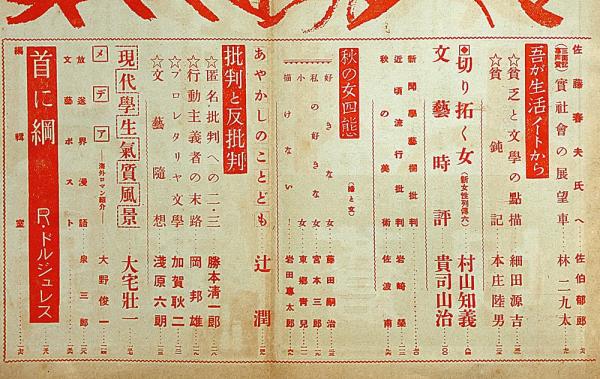 佐藤春夫氏へ 佐伯郁郎
實社會の展望車 林二九太
吾が生活ノートから
☆貧乏と文學の點描 細田源吉
☆貧鈍記 本庄陸男
◆切り拓く女(新女性列傳六) 村山知義
文藝時評 貴司山治
新聞學藝欄批判 岩崎榮
近頃流行批判
秋の美術 佐波甫
秋の女四態(繪と文)
好きな女 藤田嗣治
私の好きな女 宮本三郎
小女 東郷靑兒
描けない! 岩田專太郎
あやかしのことども 辻潤
批判と反批判
☆匿名・批判への二・三 勝本淸一郎
☆行動主義者の末路 岡邦雄
☆プロレタリヤ文學 加賀耿二
☆文藝隨想 淺原六朗
現代學生氣質風景 大宅壯一
メデア―海外ロマン紹介― 大野俊一
放送界漫語 泉三郎
文藝ポスト
首に綱 R・ドルジュレス
編輯室